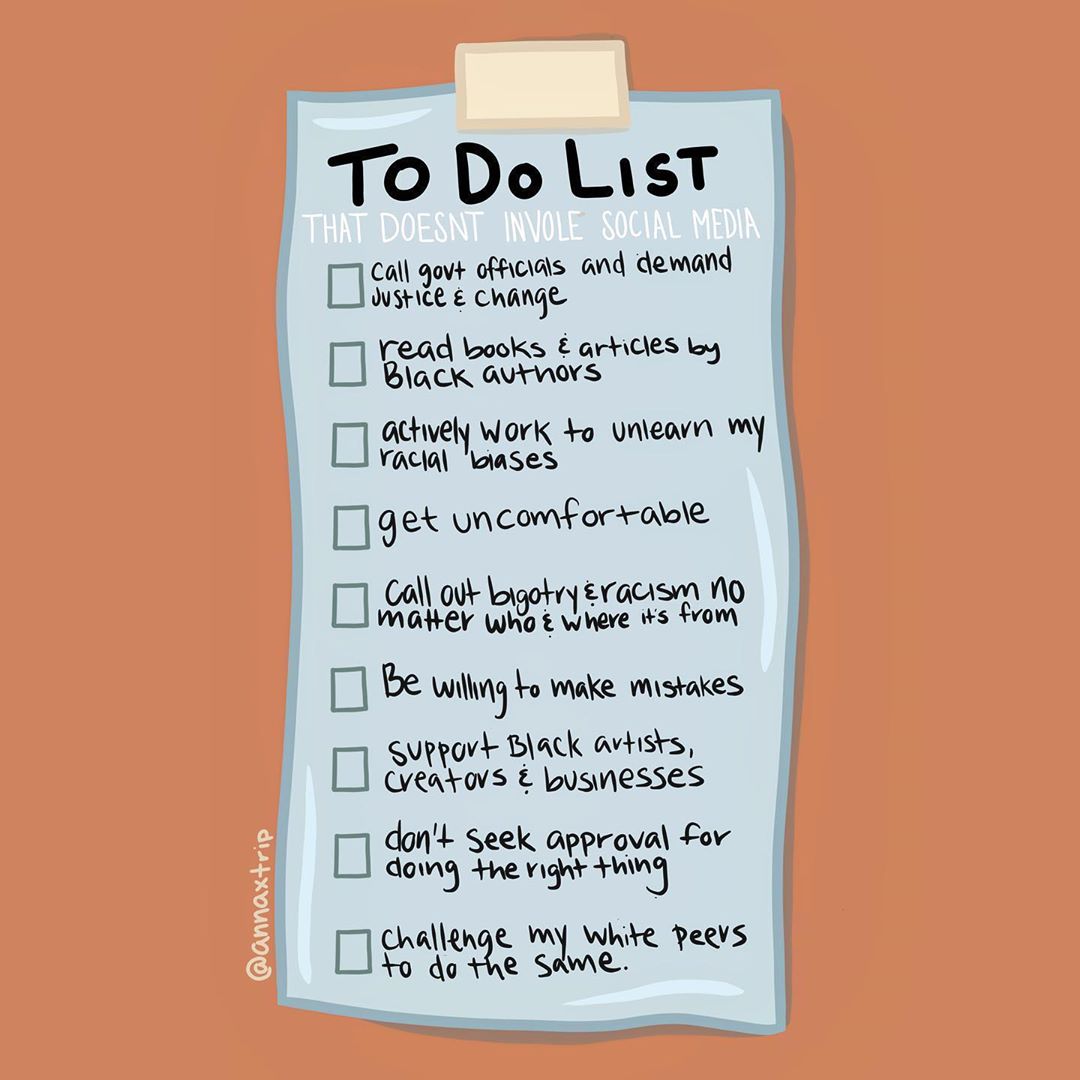 TO DO LIST
THAT DOESNT INVOLE SOCIAL MEDIA
Call govt officials and demand
Justice & change
read books & articles by
Black authors
actively work to unlearn my
racial biases
get uncomfortable
Call out bigotry & racism no
matter who & where it's from
Be willing to make mistakes
support Black artists,
creators & businesses
don't seek approval for
doing the right thing
challenge my white peers
to do the same.
@annaxtrip